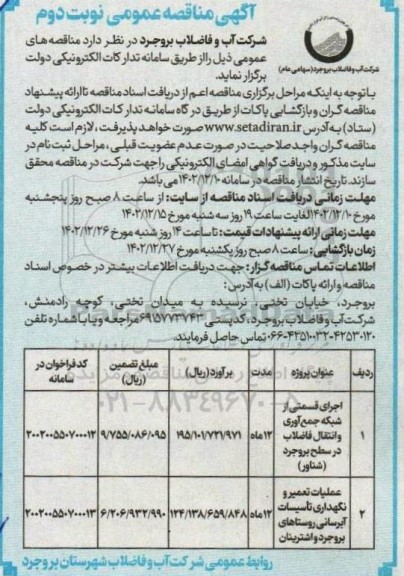 آگهی مناقصه عمومی نوبت دوم
شرکت آب و فاضلاب بروجرد (سهامی عام)
شرکت آب و فاضلاب بروجرد در نظر دارد مناقصه های
عمومی ذیل را از طریق سامانه تدارکات الکترونیکی دولت
برگزار نماید.
با توجه به اینکه مراحل برگزاری مناقصه اعم از دریافت اسناد مناقصه تا ارائه پیشنهاد
مناقصه گران و بازگشایی پاکات از طریق درگاه سامانه تدارکات الکترونیکی دولت
(ستاد) به آدرس www.setadiran.ir صورت خواهد پذیرفت، لازم است کلیه
مناقصه گران واجد صلاحیت در صورت عدم عضویت قبلی، مراحل ثبت نام در
سایت مذکور و دریافت گواهی امضای الکترونیکی را جهت شرکت در مناقصه محقق
سازند. تاریخ انتشار مناقصه در سامانه ۱۴۰۲/۱۲/۱۰ می باشد.
مهلت زمانی دریافت اسناد مناقصه از سایت: از ساعت ۸ صبح روز پنجشنبه
مورخ ۱۴۰۲/۱۲/۱۰ لغایت ساعت ۱۹ روز سه شنبه مورخ ۱۴۰۲/۱۲/۱۵
مهلت زمانی ارائه پیشنهادات قیمت: تا ساعت ۱۴ روز شنبه مورخ ۱۴۰۲/۱۲/۲۶
زمان بازگشایی: ساعت ۸ صبح روز یکشنبه مورخ ۱۴۰۲/۱۲/۲۷
اطلاعات تماس مناقصه گزار: جهت دریافت اطلاعات بیشتر در خصوص اسناد
مناقصه و ارائه پاکات (الف) به آدرس:
بروجرد، خیابان تختی، نرسیده به میدان تختی، کوچه رادمنش،
شرکت آب و فاضلاب بروجرد، کدپستی ۶۹۱۵۷۷۳۷۴۳ مراجعه و یا با شماره تلفن
۰۶۶-۴۲۵۱۰۳۲-۴۲۵۳۰۱۲۰ تماس حاصل فرمایند.
ردیف عنوان پروژه مدت برآورد (ریال) مبلغ تضمین (ریال) کد فراخوان در سامانه
۱ اجرای قسمتی از شبکه جمع آوری و انتقال فاضلاب در سطح بروجرد (شناور) ۱۲ ماه ۱۹۵/۱۰۱/۷۲۱/۹۷۱ ۹/۷۵۵/۰۸۶/۰۹۵ ۲۰۰۲۰۰۵۵۰۷۰۰۰۱۲
۲ عملیات تعمیر و نگهداری تأسیسات آبرسانی روستاهای بروجرد و اشترینان ۱۲ ماه ۱۲۴/۱۳۸/۶۵۹/۸۴۸ ۶/۲۰۶/۹۳۲/۹۹۰ ۲۰۰۲۰۰۵۵۰۷۰۰۰۱۳
روابط عمومی شرکت آب و فاضلاب شهرستان بروجرد